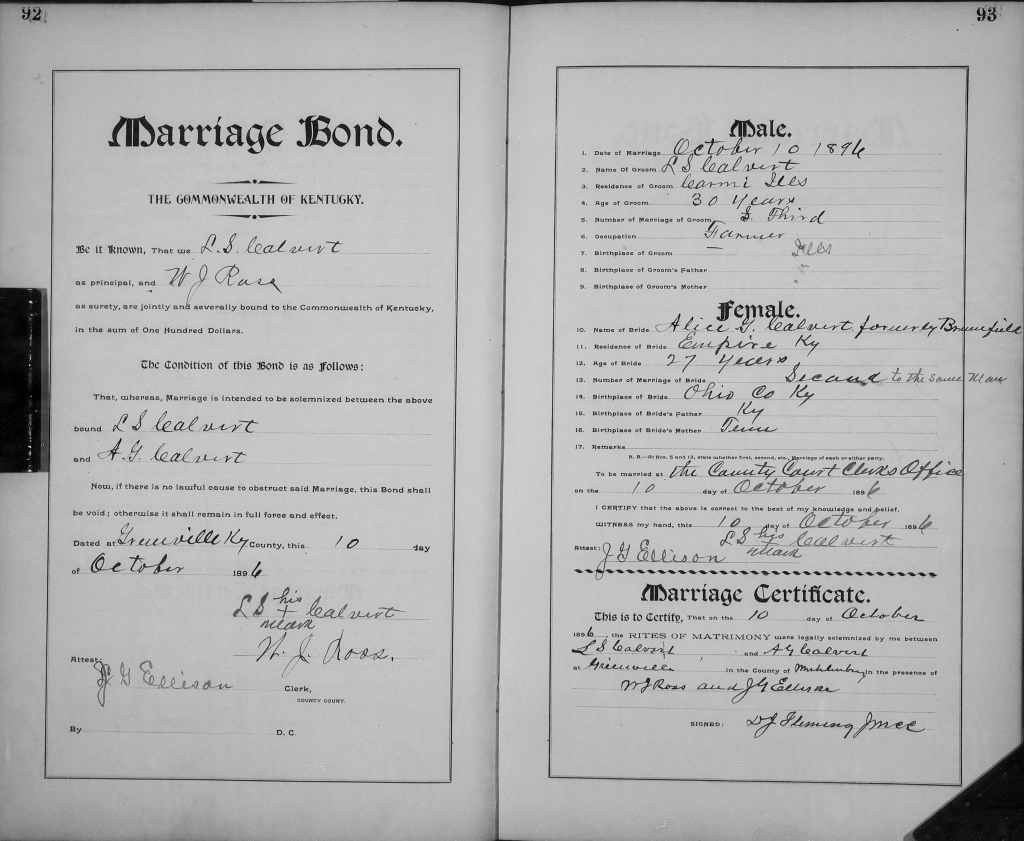 92
Marriage Bond.
THE COMMONWEALTH OF KENTUCKY.
Be it Known, That we L. S. Calvert
as principal, and W J Ross
as surety, are jointly and severally bound to the Commonwealth of Kentucky,
in the sum of One Hundred Dollars.
The Condition of this Bond is as Follows:
That, whereas, Marriage is intended to be solemnized between the above
bound L S Calvert
and A. G. Calvert
Now, if there is no lawful cause to obstruct said Marriage, this Bond shall
be void; otherwise it shall remain in full force and effect.
Dated at Greenville Ky County, this 10 day
of October 1896
L S his + mark Calvert
W. J. Ross.
Attest:
J G Ellison Clerk,
COUNTY COURT.
By D. C.
93
Male.
1. Date of Marriage October 10 1896
2. Name Of Groom L S Calvert
3. Residence of Groom Carmi Ills
4. Age of Groom 30 years
5. Number of Marriage of Groom Third
6. Occupation Farmer
7. Birthplace of Groom Ills
8. Birthplace of Groom's Father
9. Birthplace of Groom's Mother
Female.
10. Name of Bride Alice G. Calvert formerly Brumfield
11. Residence of Bride Empire Ky
12. Age of Bride 27 years
13. Number of Marriage of Bride Second to the same Man
14. Birthplace of Bride Ohio Co Ky
15. Birthplace of Bride's Father Ky
16. Birthplace of Bride's Mother Tenn
17. Remarks
N. B.—At Nos. 5 and 13, state whether first, second, etc., Marriage of each or either party.
To be married at the County Court Clerks Office
on the 10 day of October 1896
I CERTIFY that the above is correct to the best of my knowledge and belief.
WITNESS my hand, this 10 day of October 1896
L S his mark Calvert
Attest: J G Ellison
Marriage Certificate.
This is to Certify, That on the 10 day of October
1896, the RITES OF MATRIMONY were legally solemnized by me between
L S Calvert and A G Calvert
at Greenville in the County of Muhlenberg in the presence of
W J Ross and J G Ellison
SIGNED: D J Fleming J M C C